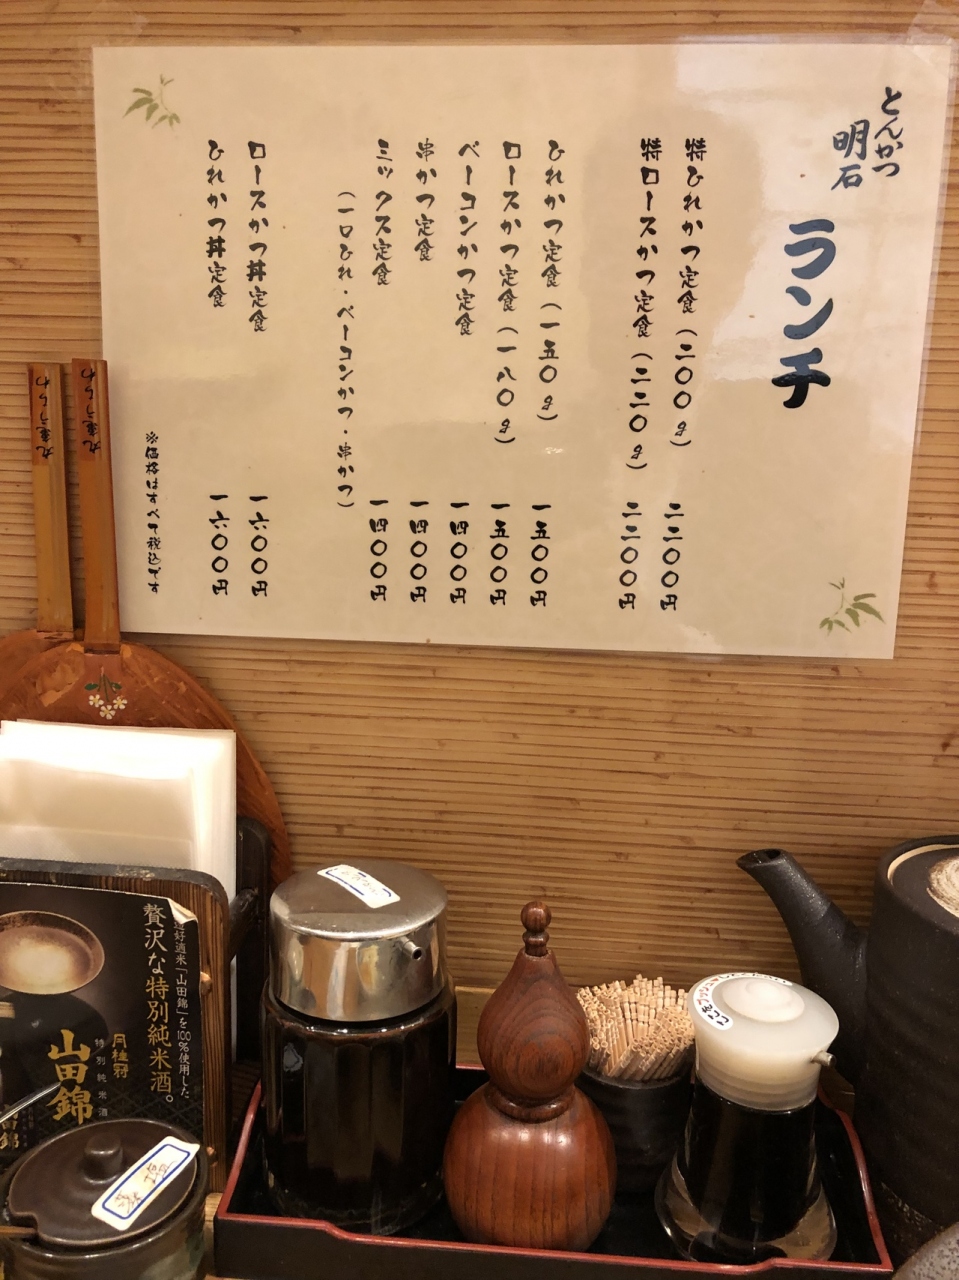 とんかつ
明石
ランチ
特ひれかつ定食(二〇〇g) 二二〇〇円
特ロースかつ定食(二二〇g) 二二〇〇円
ひれかつ定食(一五〇g) 一五〇〇円
ロースかつ定食(一八〇g) 一五〇〇円
ベーコンかつ定食 一四〇〇円
串かつ定食 一四〇〇円
ミックス定食 一四〇〇円
(一口ひれ・ベーコンかつ・串かつ)
ロースかつ丼定食 一六〇〇円
ひれかつ丼定食 一六〇〇円
※価格はすべて税込です
丸亀うちわ
丸亀うちわ
適好適米「山田錦」を100%使用した
贅沢な特別純米酒。
月桂冠
特別純米酒
山田錦